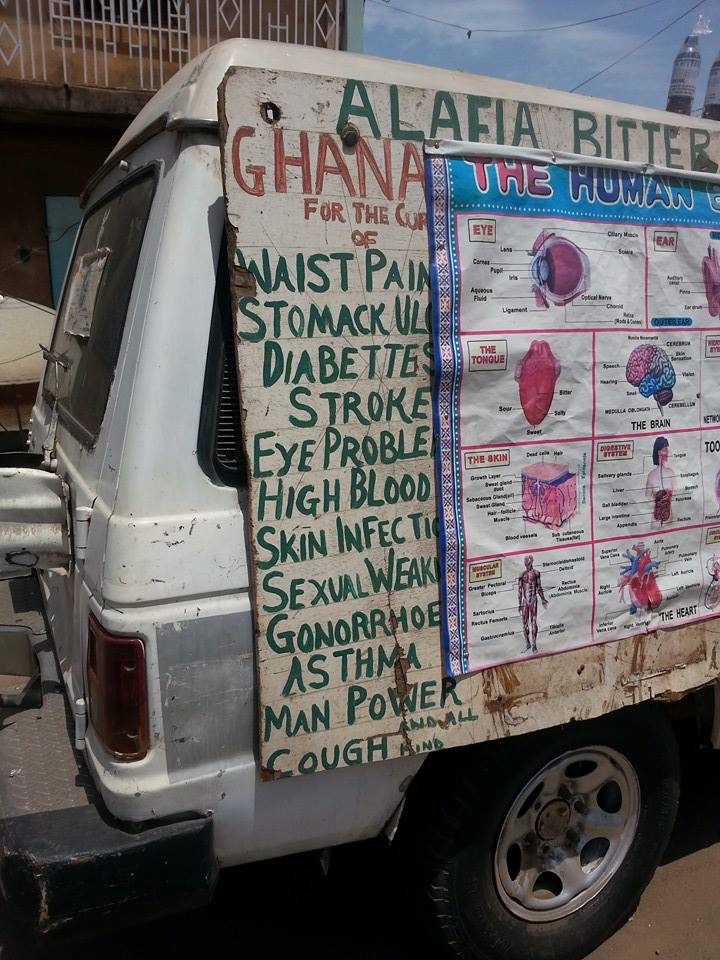 ALAFIA BITTER
GHANA
FOR THE CUR
OF
WAIST PAIN
STOMACK ULC
DIABETTES
STROKE
EYE PROBLEM
HIGH BLOOD
SKIN INFECTIO
SEXUAL WEAK
GONORRHOE
ASTHMA
MAN POWER
AND ALL
COUGH KIND
THE HUMAN
EYE
Ciliary Muscle
Lens
Sclera
Cornea
Pupil
Iris
Aqueous
Fluid
Optical Nerve
Choroid
Ligament
Retina
(Rods & Cones)
EAR
Auditory
canal
Pinna
Ear drum
OUTER EAR
THE
TONGUE
Bitter
Sour
Salty
Sweet
CEREBRUM
Speech
Skin
Sensation
Hearing
Smell
CEREBELLUM
MEDULLA OBLONGATA
THE BRAIN
THE SKIN
Dead cells
Hair
Growth Layer
Sweat gland
duct
Sebaceous Gland(oil)
Sweat Gland
Hair-follicle
Muscle
Blood vessels
Sub cutaneous
Tissue(fat)
DIGESTIVE
SYSTEM
Tongue
Salivary glands
Esophagus
Liver
Stomach
Gall bladder
Pancreas
Large intestine
Appendix
Rectum
TOO
MUSCULAR
SYSTEM
Sternocleidomastoid
Deltoid
Greater Pectoral
Biceps
Rectus
Abdominis
(Abdominal Muscle)
Sartorius
Rectus Femoris
Tibialis
Anterior
Gastrocnemius
Superior
Vena Cava
Aorta
Pulmonary
Artery
Pulmonary
Vein
Left Auricle
Right
Auricle
Left Ventricle
Inferior
Vena cava
Right Ventricle
THE HEART